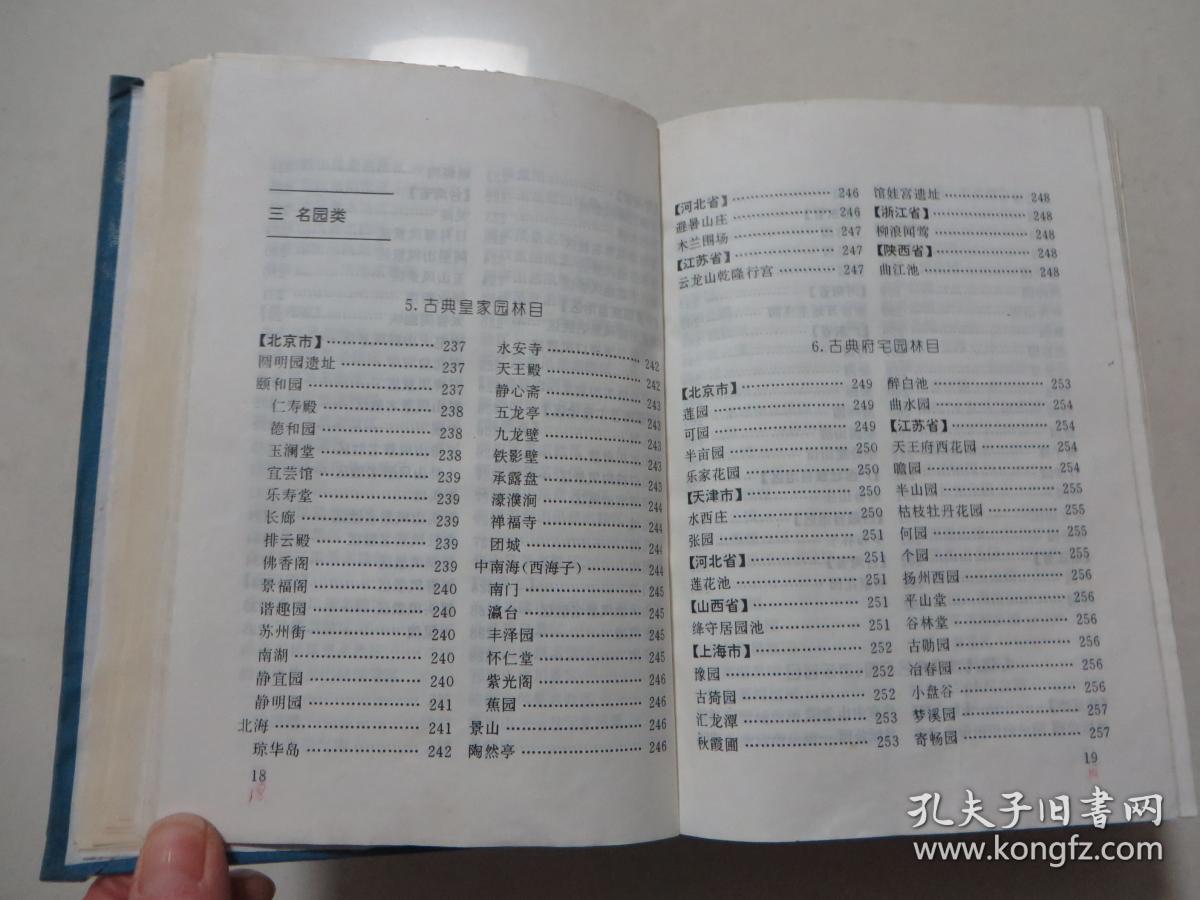 三 名园类
5.古典皇家园林目
【北京市】 ………… 237
圆明园遗址 ………… 237
颐和园 ………… 237
仁寿殿 ………… 238
德和园 ………… 238
玉澜堂 ………… 238
宜芸馆 ………… 239
乐寿堂 ………… 239
长廊 ………… 239
排云殿 ………… 239
佛香阁 ………… 239
景福阁 ………… 240
谐趣园 ………… 240
苏州街 ………… 240
南湖 ………… 240
静宜园 ………… 240
静明园 ………… 241
北海 ………… 241
琼华岛 ………… 242
永安寺 ………… 242
天王殿 ………… 242
静心斋 ………… 243
五龙亭 ………… 243
九龙壁 ………… 243
铁影壁 ………… 243
承露盘 ………… 243
濠濮涧 ………… 244
禅福寺 ………… 244
团城 ………… 244
中南海(西海子) ………… 244
南门 ………… 245
瀛台 ………… 245
丰泽园 ………… 245
怀仁堂 ………… 245
紫光阁 ………… 246
蕉园 ………… 246
景山 ………… 246
陶然亭 ………… 246
18
【河北省】 ………… 246
避暑山庄 ………… 246
木兰围场 ………… 247
【江苏省】 ………… 247
云龙山乾隆行宫 ………… 247
馆娃宫遗址 ………… 248
【浙江省】 ………… 248
柳浪闻莺 ………… 248
【陕西省】 ………… 248
曲江池 ………… 248
6.古典府宅园林目
【北京市】 ………… 249
莲园 ………… 249
可园 ………… 249
半亩园 ………… 250
乐家花园 ………… 250
【天津市】 ………… 250
水西庄 ………… 250
张园 ………… 251
【河北省】 ………… 251
莲花池 ………… 251
【山西省】 ………… 251
绛守居园池 ………… 251
【上海市】 ………… 252
豫园 ………… 252
古猗园 ………… 252
汇龙潭 ………… 253
秋霞圃 ………… 253
醉白池 ………… 253
曲水园 ………… 254
【江苏省】 ………… 254
天王府西花园 ………… 254
瞻园 ………… 254
半山园 ………… 255
枯枝牡丹花园 ………… 255
何园 ………… 255
个园 ………… 255
扬州西园 ………… 256
平山堂 ………… 256
谷林堂 ………… 256
古勋园 ………… 256
冶春园 ………… 256
小盘谷 ………… 256
梦溪园 ………… 257
寄畅园 ………… 257
19
孔夫子旧书网
www.kongfz.com